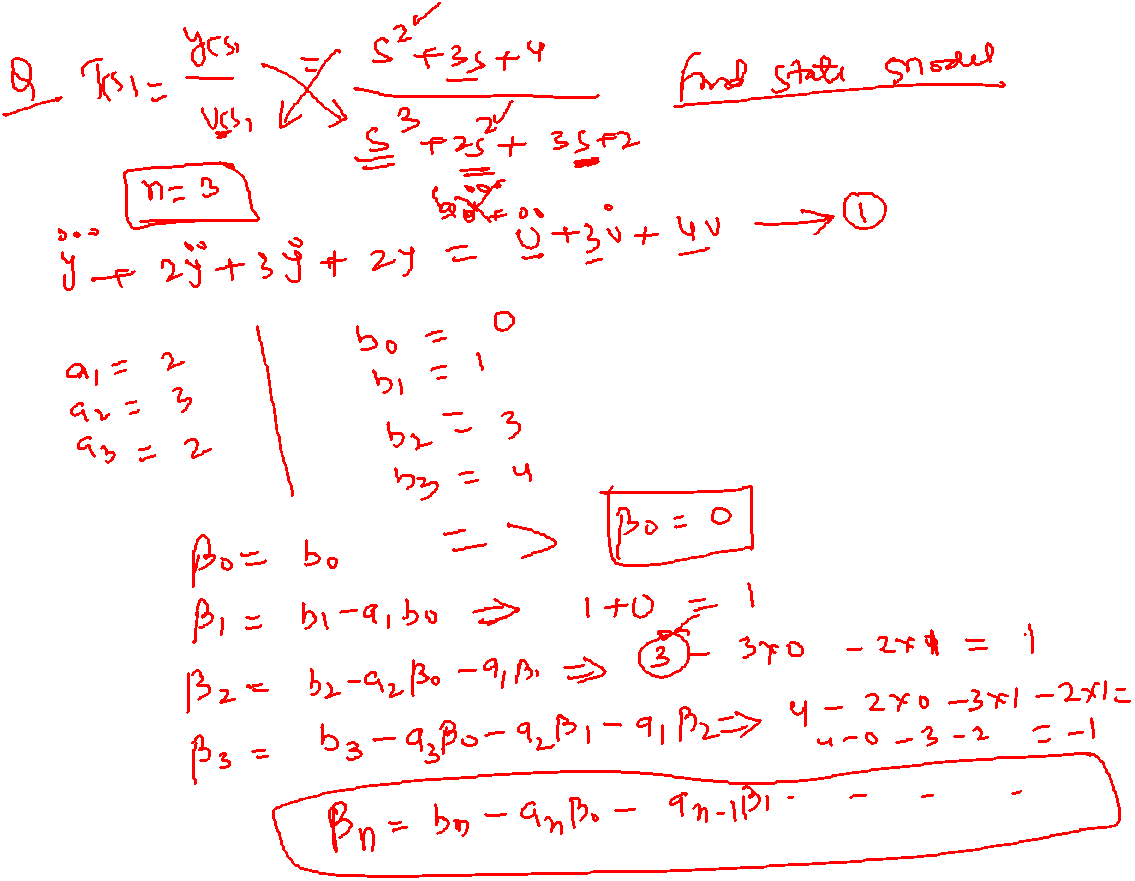 Q T(s) = Y(s) / U(s) = s² + 3s + 4 / s³ + 2s² + 3s + 2 Find state model
n = 3
y⃛ + 2ÿ + 3ẏ + 2y = ü + 3u̇ + 4u → ①
a₁ = 2
a₂ = 3
a₃ = 2
b₀ = 0
b₁ = 1
b₂ = 3
b₃ = 4
β₀ = b₀ => β₀ = 0
β₁ = b₁ - a₁b₀ ⇒ 1 + 0 = 1
β₂ = b₂ - a₂β₀ - a₁β₁ ⇒ 3 - 3×0 - 2×1 = 1
β₃ = b₃ - a₃β₀ - a₂β₁ - a₁β₂ ⇒ 4 - 2×0 - 3×1 - 2×1 =
4 - 0 - 3 - 2 = -1
βₙ = bₙ - aₙβ₀ - aₙ₋₁β₁ - - - -